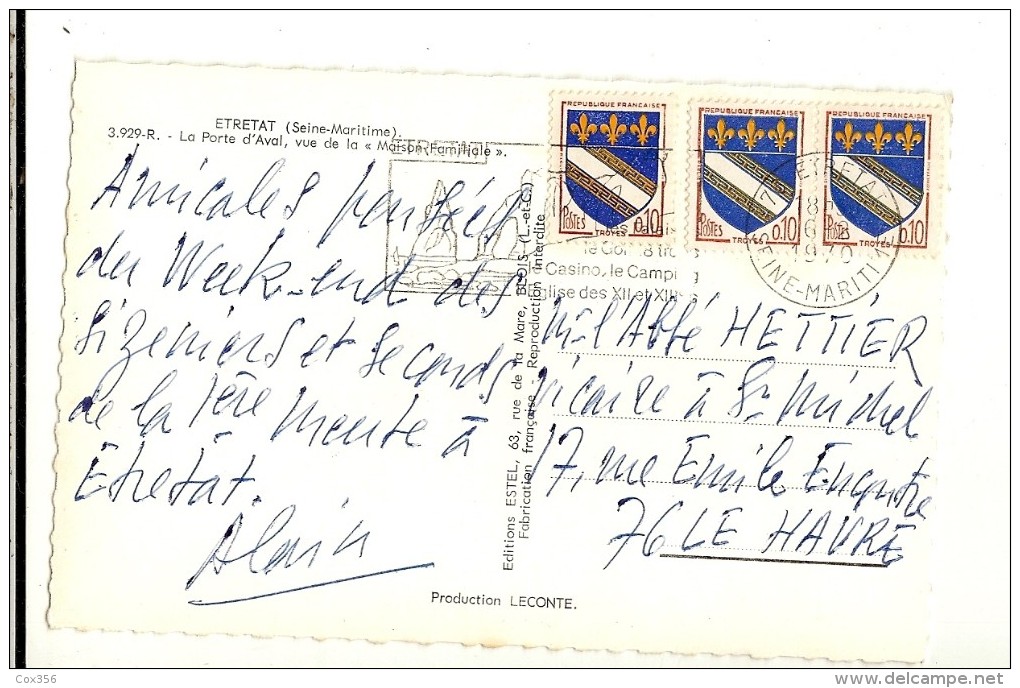 ETRETAT (Seine-Maritime).
3.929-R. - La Porte d'Aval, vue de la « Maison Familiale ».
Amicales pensées
du Week-end des
Sizeniers et seconds
de la 1ère meute à
Etretat.
Alain
Production LECONTE.
Editions ESTEL, 63, rue de la Mare, BLOIS (L.-et-C.)
Fabrication française - Reproduction interdite
REPUBLIQUE FRANÇAISE
POSTES
0,10
TROYES
REPUBLIQUE FRANÇAISE
POSTES
0,10
TROYES
REPUBLIQUE FRANÇAISE
POSTES
0,10
TROYES
ETRETAT
18
6
1970
SEINE-MARITIME
le Casino, le Camping
Eglise des XII et XIII
M. l'Abbé HETTIER
Vicaire à St Michel
17, rue Emile Encontre
76 LE HAVRE
Cox356
www.delcampe.net